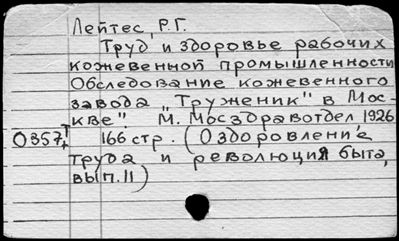 Лейтес, Р.Г.
Труд и здоровье рабочих
кожевенной промышленности
Обследование кожевенного
завода „Труженик" в Мос-
кве". М. Мосздравотдел 1926
166 стр. (Оздоровление
труда и революция быта,
вып. 11)